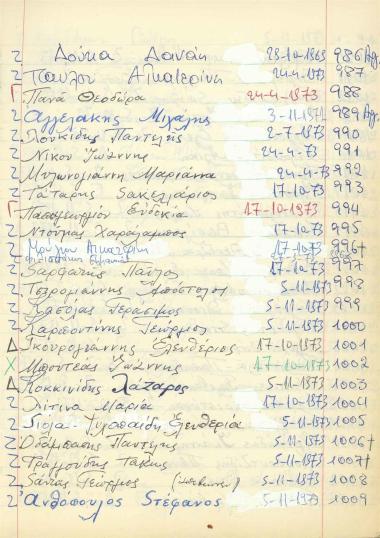 2 Δούκα Δανάη 23-10-1968 986
2 Παύλου Αικατερίνη 24-4-1973 987
Γ Πανά Θεοδώρα 24-4-1973 988
2 Αγγελάκης Μιχάλης 3-11-1971 989
2 Λουκίδης Παντελής 2-7-1973 990
2 Νίκου Ιωάννης 24-4-73 991
2 Μυλωνογιάννη Μαριάννα 24-4-73 992
2 Τάταρης Σακελλάριος 17-10-73 993
Γ Ευδοκία 17-10-1973 994
2 Ντούνας Χαράλαμπος 17-10-1973 995
2 Αικατερίνη 17-10-73 996+
2 Βαρθάτης Παύλος 17-5-1973 997
2 Απόστολος 5-11-1973 998
2 Κατσόγας Γεράσιμος 5-11-1973 999
2 Καραπουντίνης Γεώργιος 5-11-1973 1000
Δ Σκουρογιάννης Ελευθέριος 17-10-1973 1001
Χ Μπουντέας Ιωάννης 17-10-1973 1002
Δ Κοκκινίδης Λάζαρος 5-11-1973 1003
2 Λίτινα Μαρία 17-10-1973 1004
2 Ελευθερία 5-11-1973 1005
2 Παντελής 5-11-73 1006+
2 Τραμουντής Τάκης 5-11-73 1007+
2 Σάντας Γεώργιος 5-11-1973 1008
2 Ανθόπουλος Στέφανος 5-11-1973 1009